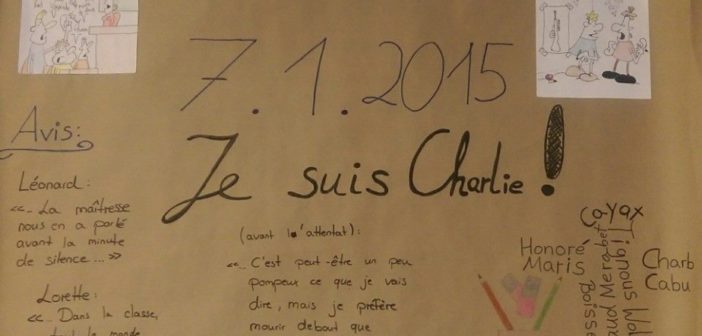 7.1.2015
Je suis Charlie !
Avis:
Léonard :
«... La maîtresse
nous en a parlé
avant la minute
de silence ... »
Lorette :
«... Dans la classe,
tout le monde
(avant l'attentat) :
«... C'est peut-être un peu
pompeux ce que je vais
dire, mais je préfère
mourir debout que
Honoré
Maris
Cayax
Tignous
Charb
Cabu